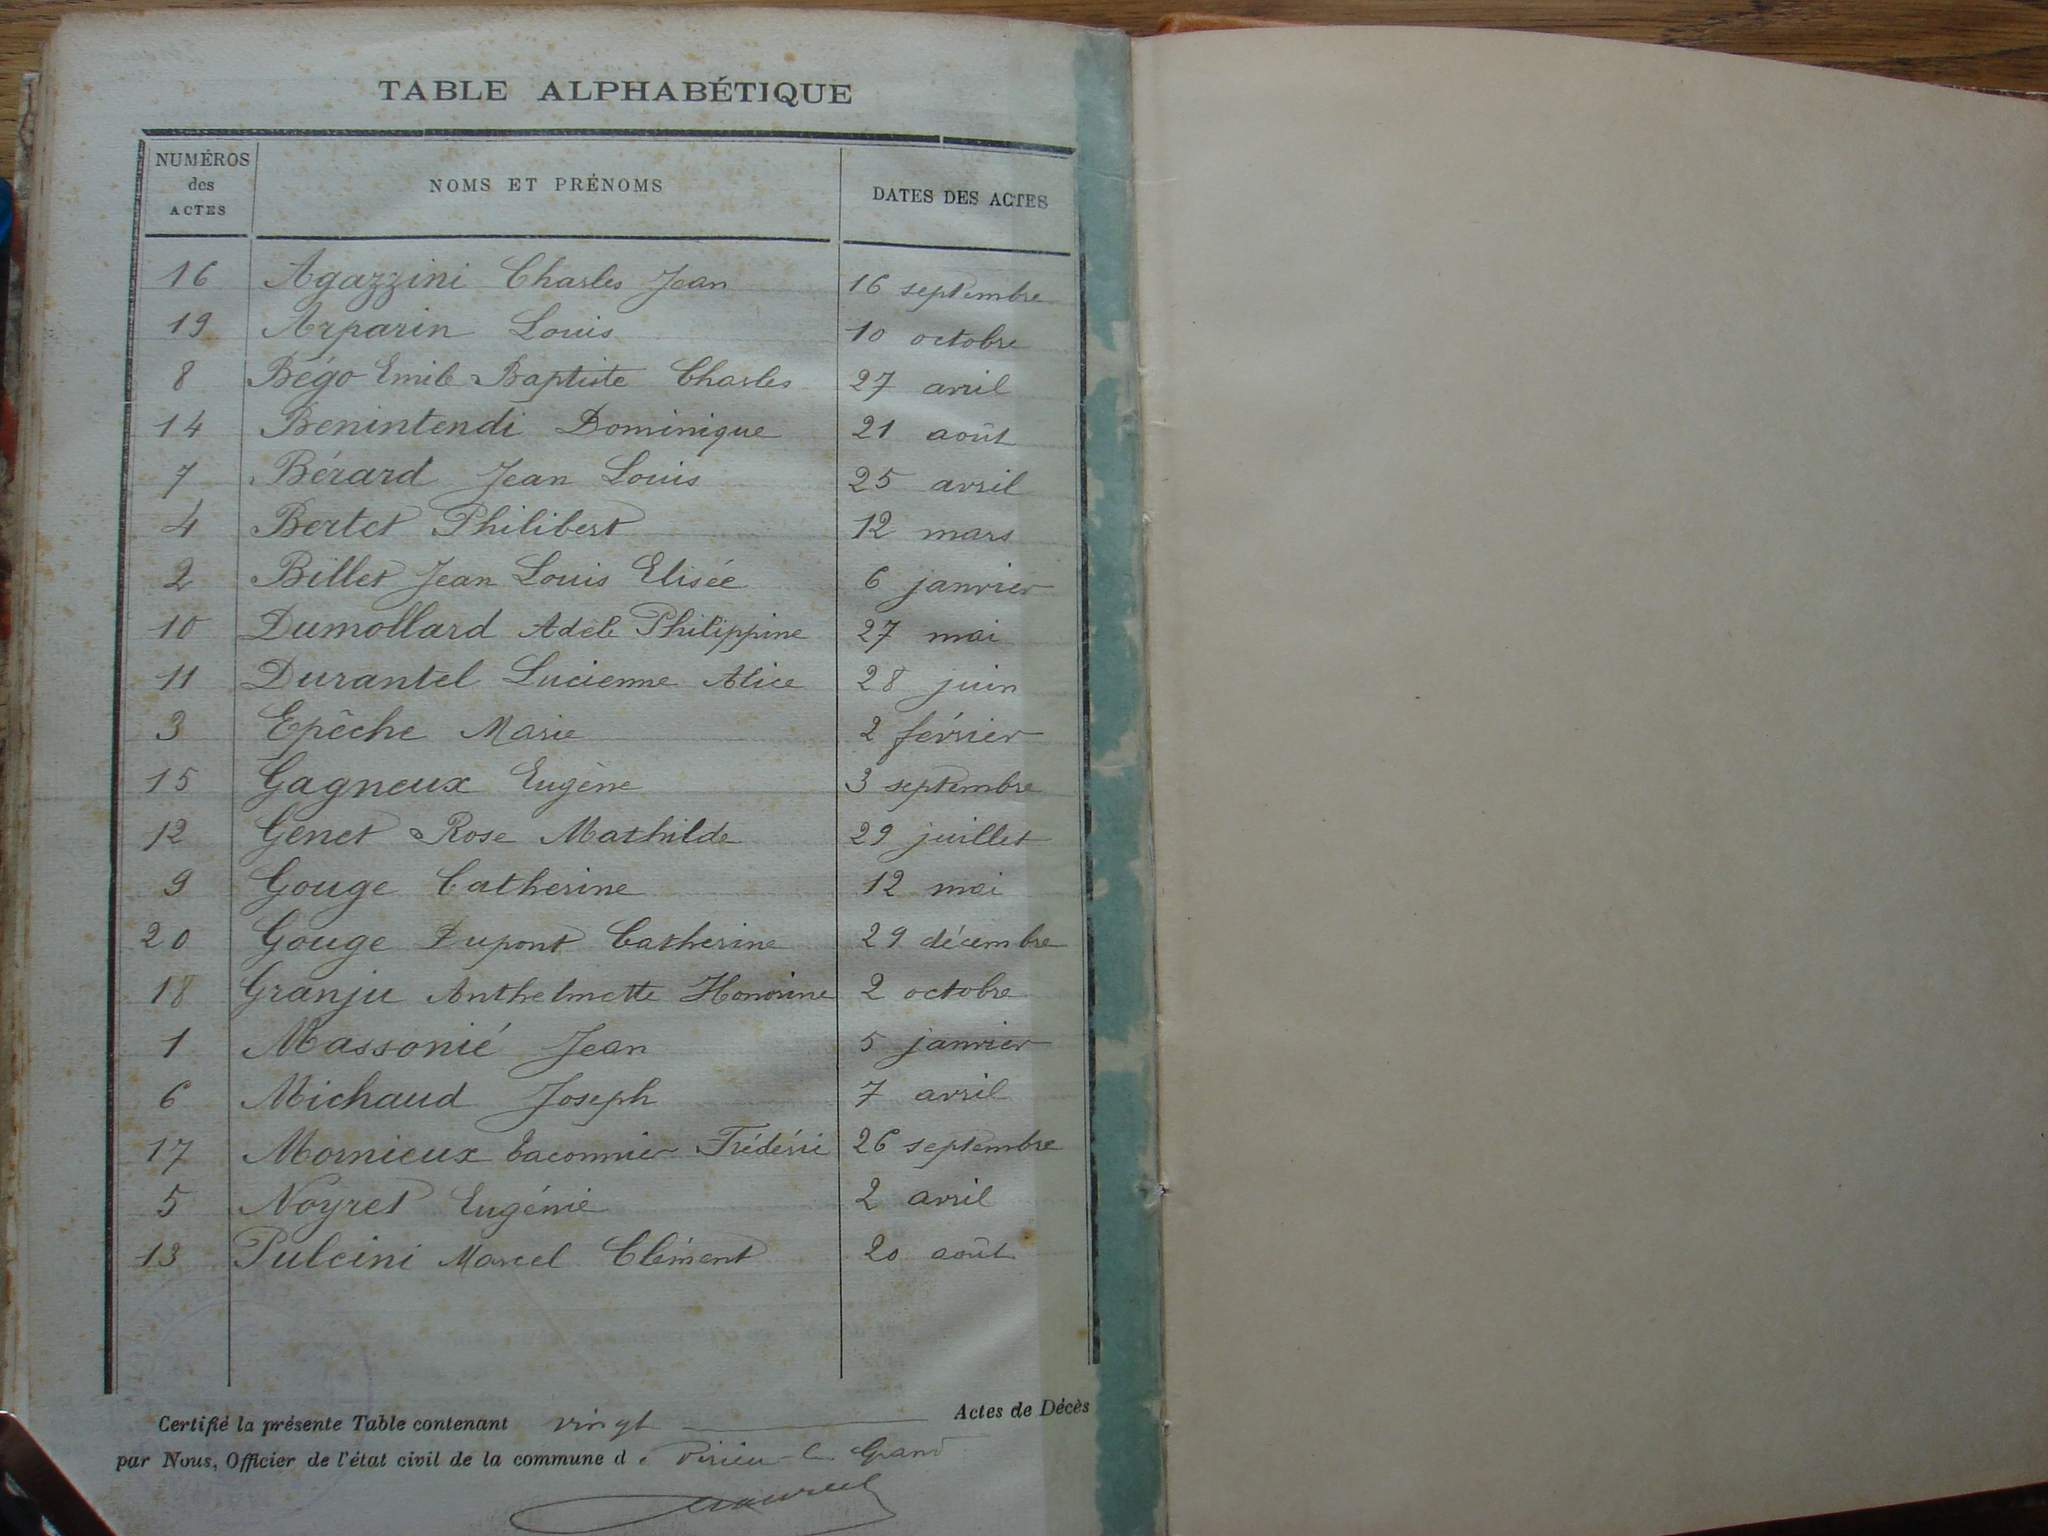 TABLE ALPHABÉTIQUE
NUMÉROS des ACTES NOMS ET PRÉNOMS DATES DES ACTES
16 Agazzini Charles Jean 16 septembre
19 Arparin Louis 10 octobre
8 Bégo Emile Baptiste Charles 27 avril
14 Benintendi Dominique 21 août
7 Bérard Jean Louis 25 avril
4 Bertet Philibert 12 mars
2 Billet Jean Louis Elisée 6 janvier
10 Dumollard Adèle Philippine 27 mai
11 Durantel Lucienne Alice 28 juin
3 Epêche Marie 2 février
15 Gagneux Eugène 3 septembre
12 Genet Rose Mathilde 29 juillet
9 Gouge Catherine 12 mai
20 Gouge Dupont Catherine 29 décembre
18 Granju Anthelmette Honorine 2 octobre
1 Massonié Jean 5 janvier
6 Michaud Joseph 7 avril
17 Mornieux Taconnier Frédéric 26 septembre
5 Noyret Eugénie 2 avril
13 Pulcini Marcel Clément 20 août
Certifié la présente Table contenant vingt Actes de Décès
par Nous, Officier de l'état civil de la commune de Virieu-le Grand